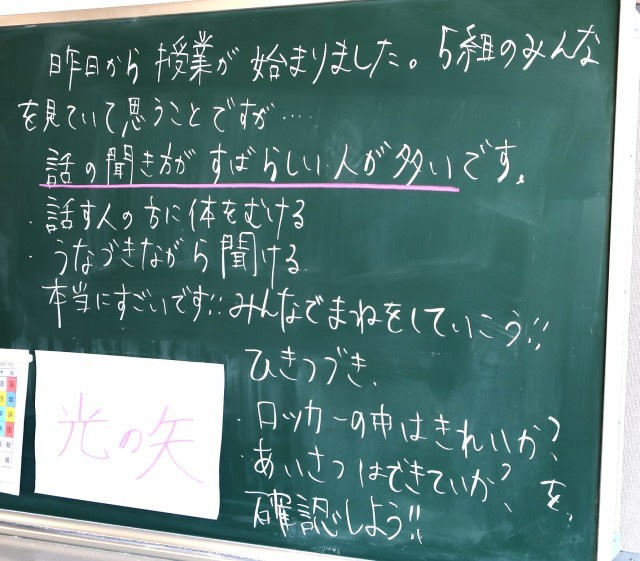 昨日から授業が始まりました。5組のみんな
を見ていて思うことですが……
話の聞き方がすばらしい人が多いです。
・話す人の方に体をむける
・うなづきながら聞ける
本当にすごいです!!みんなでまねをしていこう!!
ひきつづき、
・ロッカーの中はきれいか?
・あいさつはできていか?を、
確認しよう!!
光の矢